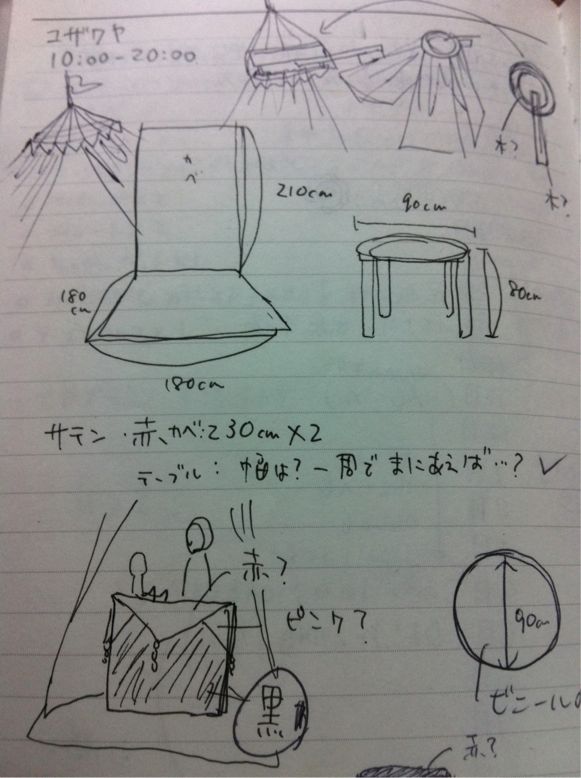 ユザワヤ
10:00-20:00
木?
木?
カベ
210cm
90cm
180cm
80cm
180cm
サテン・赤、カベ:230cm×2
テーブル: 幅は?一周でまにあえば…?✓
赤?
ピンク?
90cm
黒
ビニールの
赤?